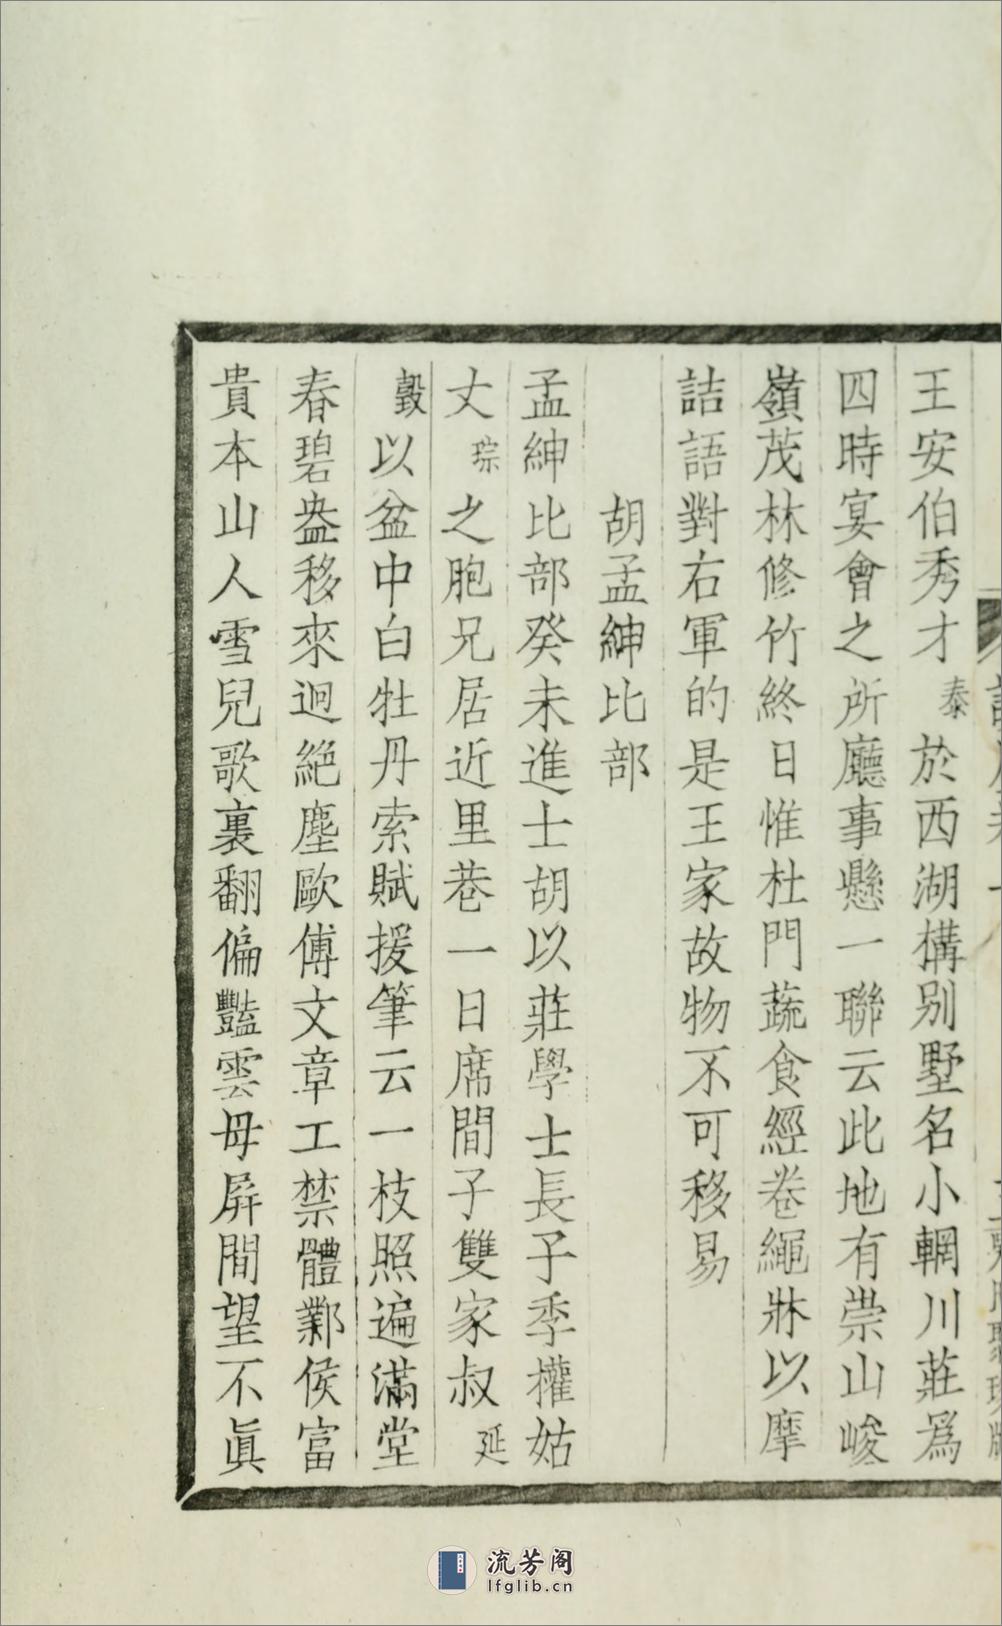 王安伯秀才泰於西湖構別墅名小輞川莊爲
四時宴會之所廳事懸一聯云此地有崇山峻
嶺茂林修竹終日惟杜門蔬食經卷繩牀以摩
詰語對右軍的是王家故物不可移易
胡孟紳比部
孟紳比部癸未進士胡以莊學士長子季權姑
丈琮之胞兄居近里巷一日席間子雙家叔延
瑴以盆中白牡丹索賦援筆云一枝照遍滿堂
春碧盎移來迥絕塵歐傅文章工禁體酇侯富
貴本山人雪兒歌裏翻偏豔雲母屏間望不眞
流芳阁
lfglib.cn